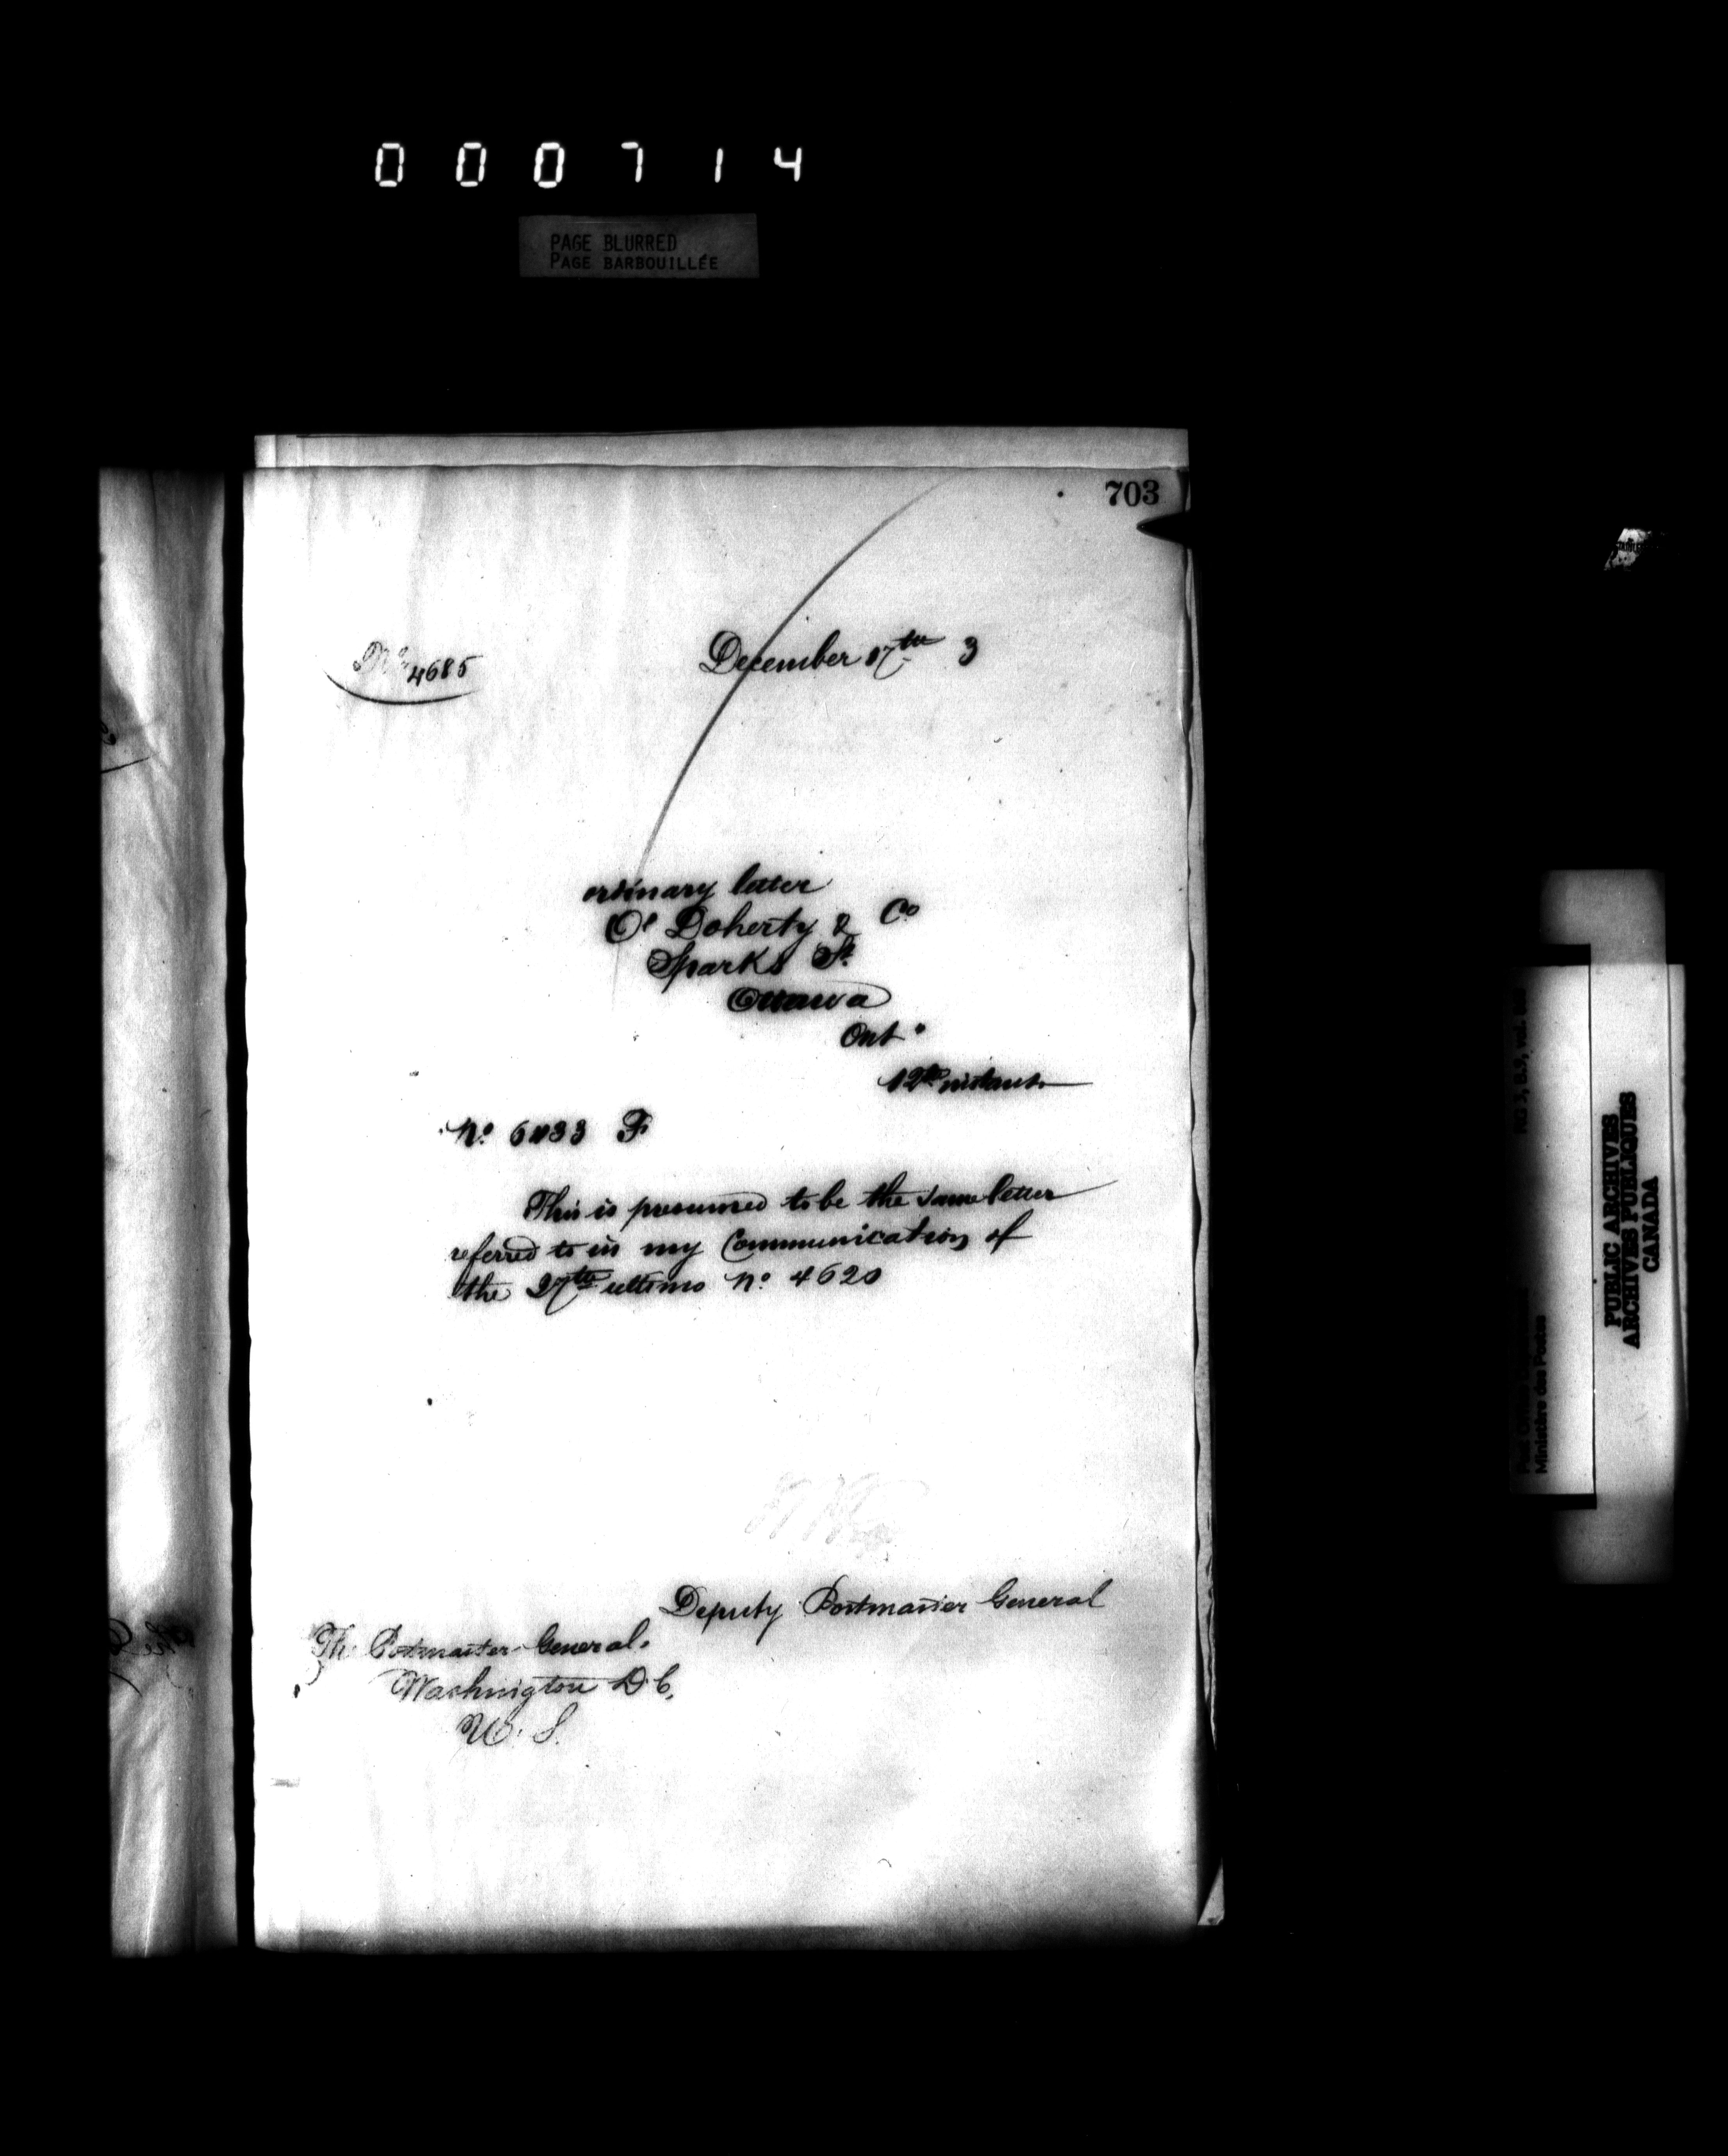 000714
PAGE BLURRED
PAGE BARBOUILLÉE
703
No 4685
December 17th 3
ordinary letter
O'Doherty & Co
Sparks St.
Ottawa
Ont.
12th instant
No. 6033 F
This is presumed to be the same letter
referred to in my Communication of
the 27th ultimo No. 4620
Deputy Postmaster General
The Postmaster General.
Washington D.C.
U.S.
RG 3, B.9, vol.
Ministère des Postes
PUBLIC ARCHIVES
ARCHIVES PUBLIQUES
CANADA